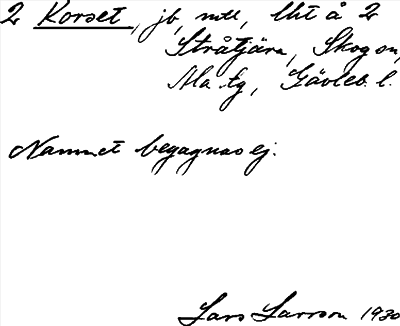 2 Korset, jb, mtl, Utt å 2
Stråtjära, Skog sn,
Ala tg, Gävleb. l.
Namnet begagnas ej.
Lars Larsson 1930